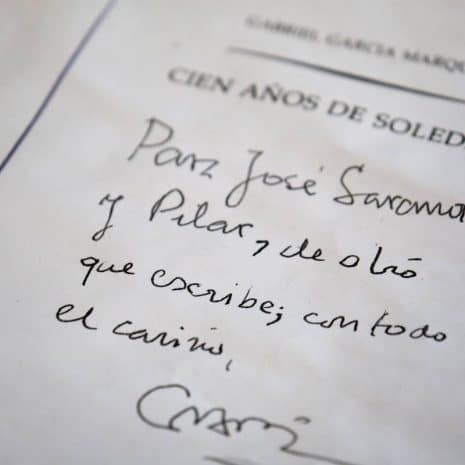 GABRIEL GARCIA MARQU
CIEN AÑOS DE SOLED
Para José Saramo
y Pilar, de otro
que escribe; con todo
el cariño,